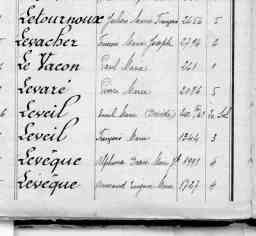 Letournoux Julien Marie François 2656 5
Levacher François Marie Joseph 2794 4
Le Vacon Paul Marie 221 1
Levaré Pierre Marie 2086 5
Leveil Émile Marie
Leveil François Marie 1344 3
Levêque Alphonse Jean Marie 1991 4
Levêque Armand Eugène Marie 1727 4